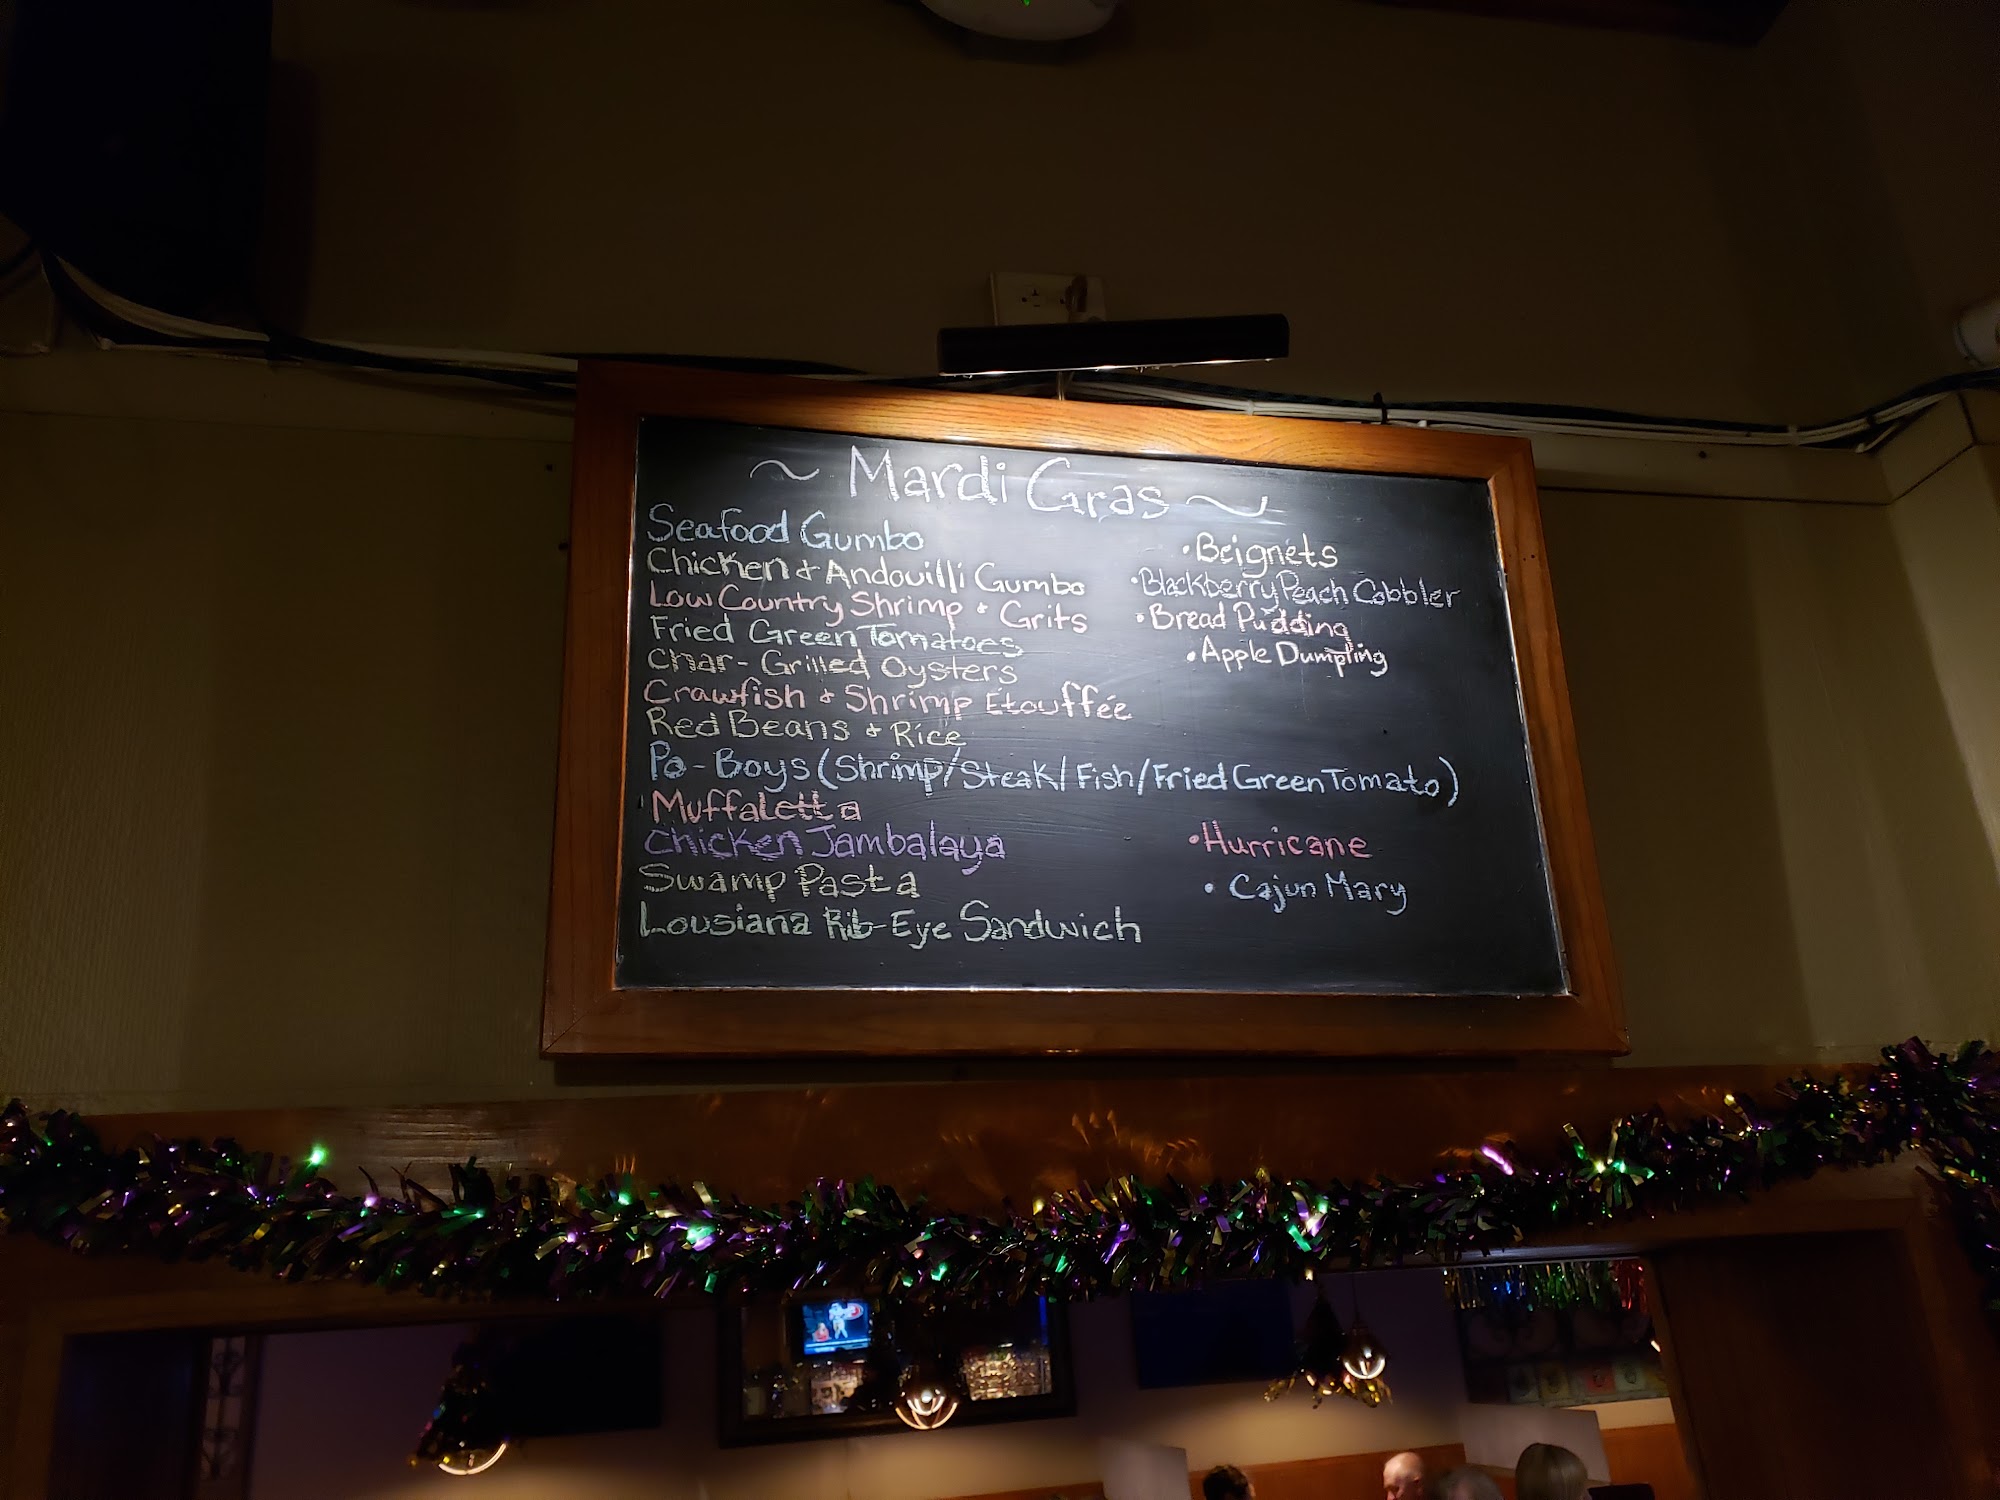 ~ Mardi Gras ~
Seafood Gumbo
Chicken & Andouilli Gumbo
Low Country Shrimp & Grits
Fried Green Tomatoes
Char-Grilled Oysters
Crawfish & Shrimp Étouffée
Red Beans & Rice
Po-Boys (Shrimp/Steak/Fish/Fried Green Tomato)
Muffaletta
Chicken Jambalaya
Swamp Pasta
Lousiana Rib-Eye Sandwich
• Beignets
• Blackberry Peach Cobbler
• Bread Pudding
• Apple Dumpling
• Hurricane
• Cajun Mary